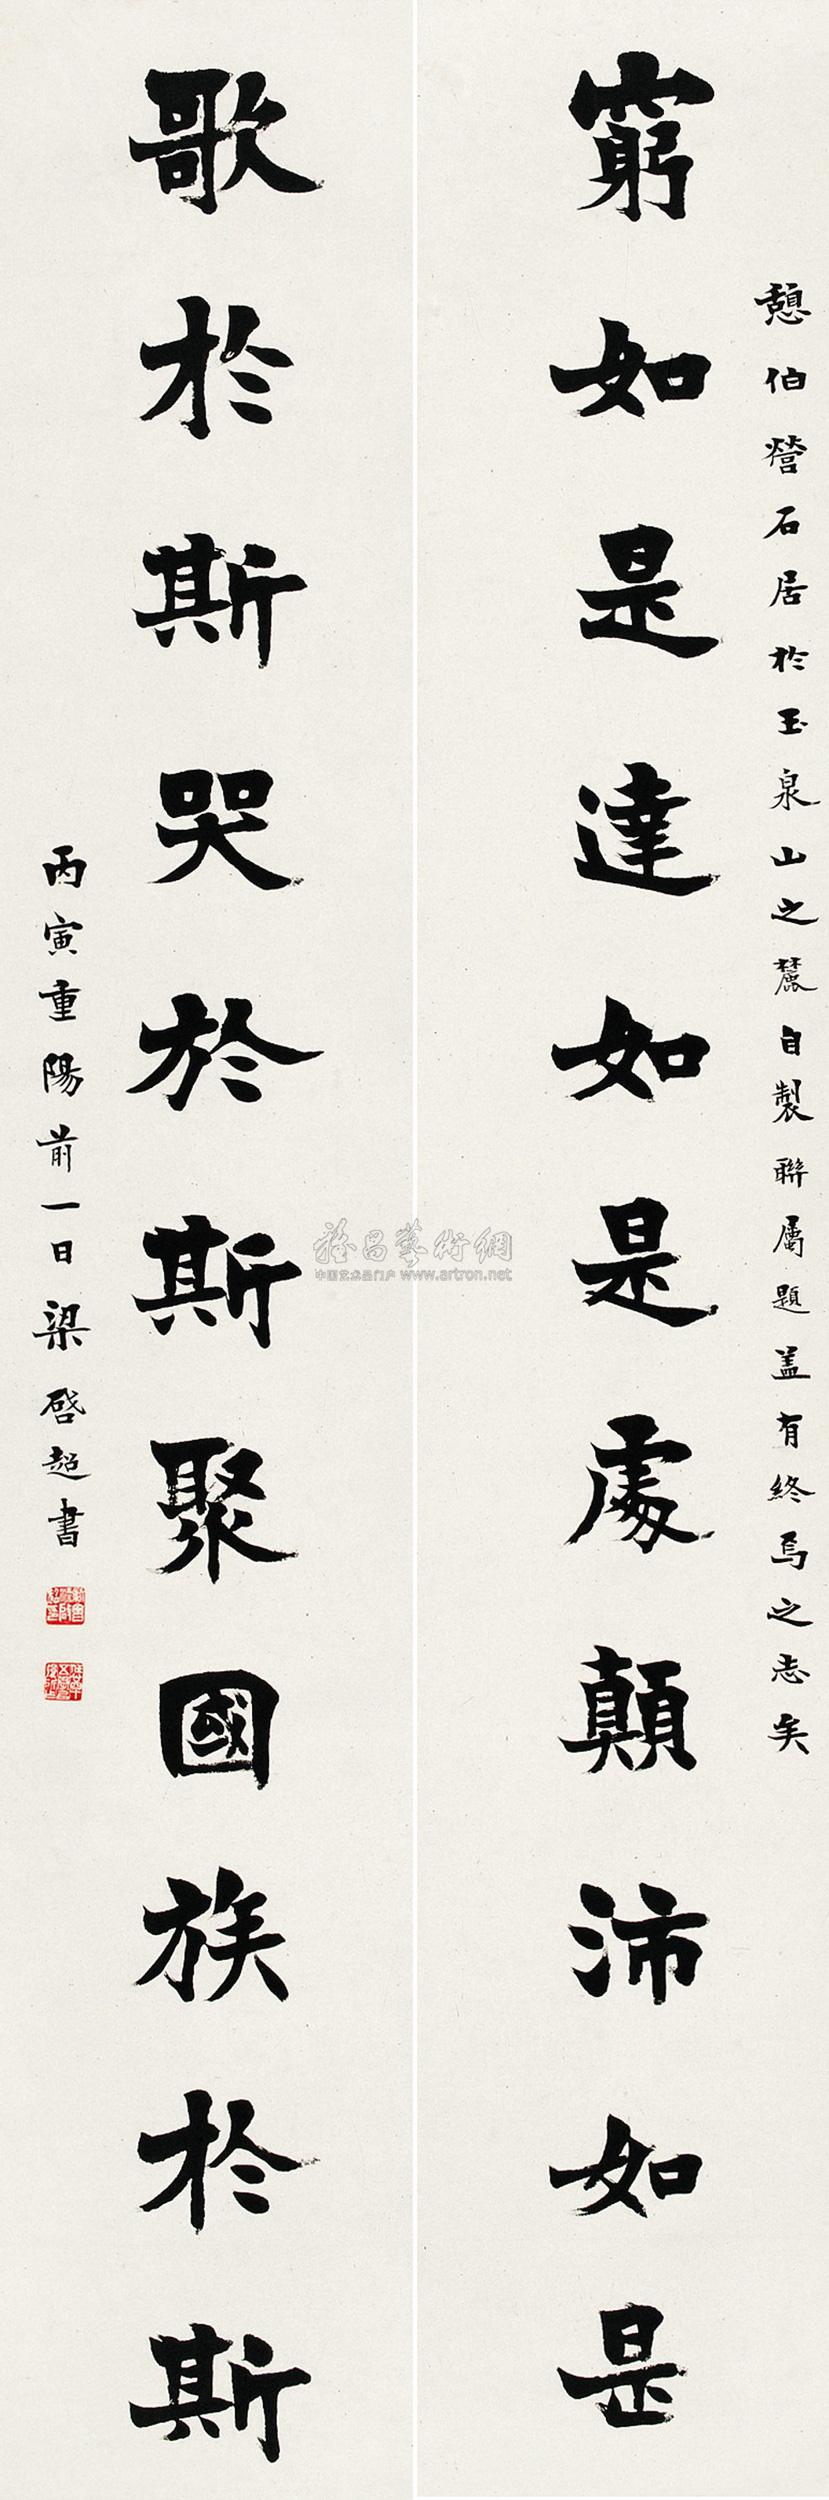 憩伯營石居於玉泉山之麓自製聯屬題蓋有終焉之志矣
窮如是達如是處顛沛如是
歌於斯哭於斯聚國族於斯
丙寅重陽前一日梁啓超書
雅昌藝術網
中国艺术品门户 www.artron.net